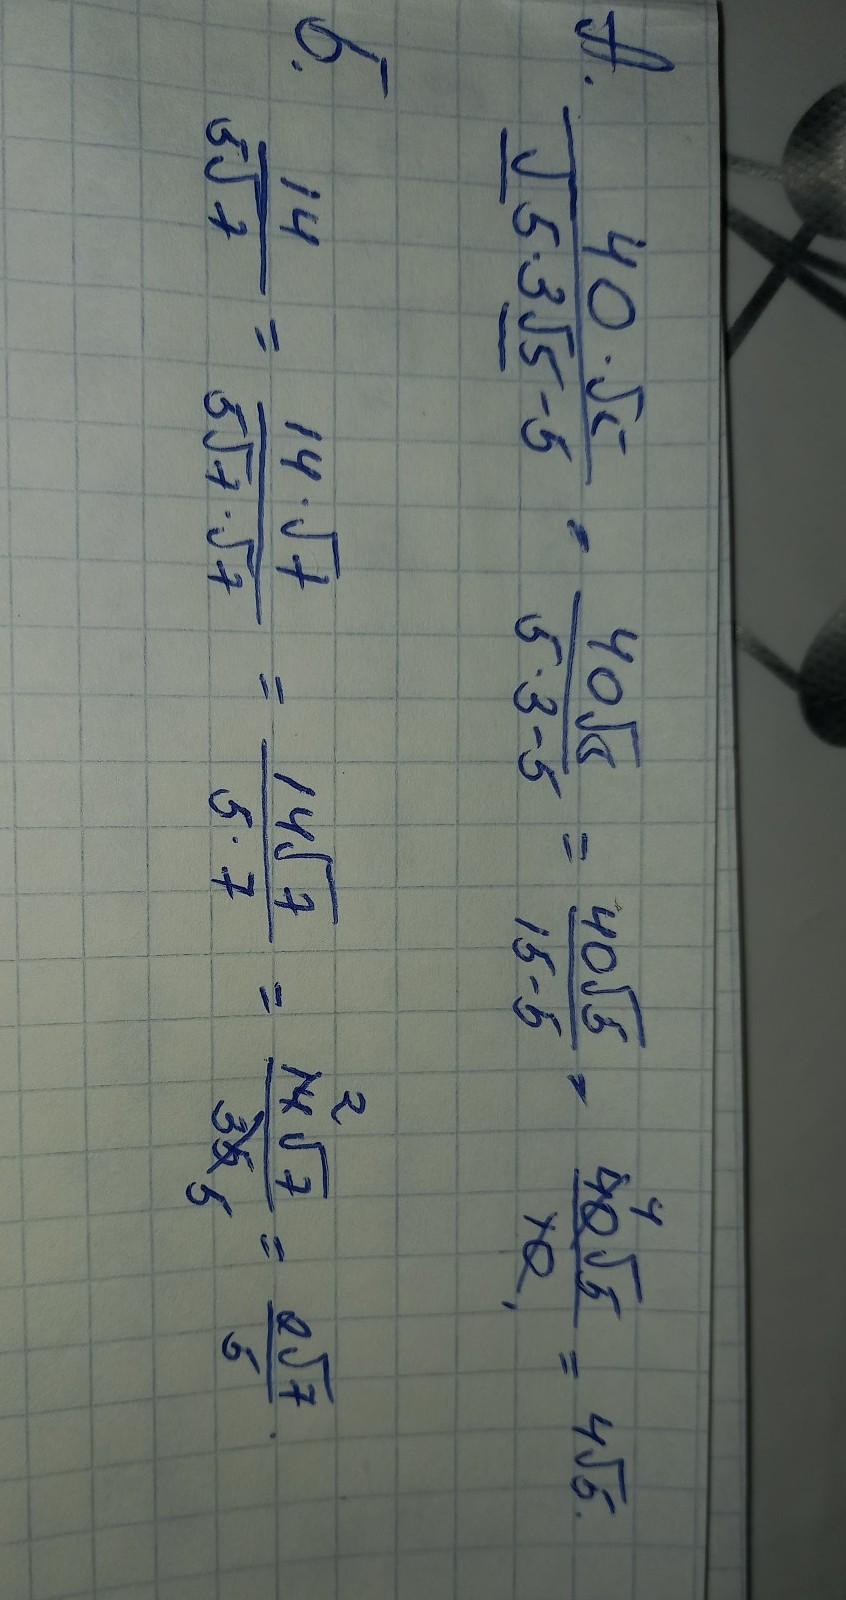 А. 40·√5 / √5·3√5-5 = 40√5 / 5·3-5 = 40√5 / 15-5 = 40√5 4 / 10 1 = 4√5.
Б. 14 / 5√7 = 14·√7 / 5√7·√7 = 14√7 / 5·7 = 14√7 2 / 35 5 = 2√7 / 5.